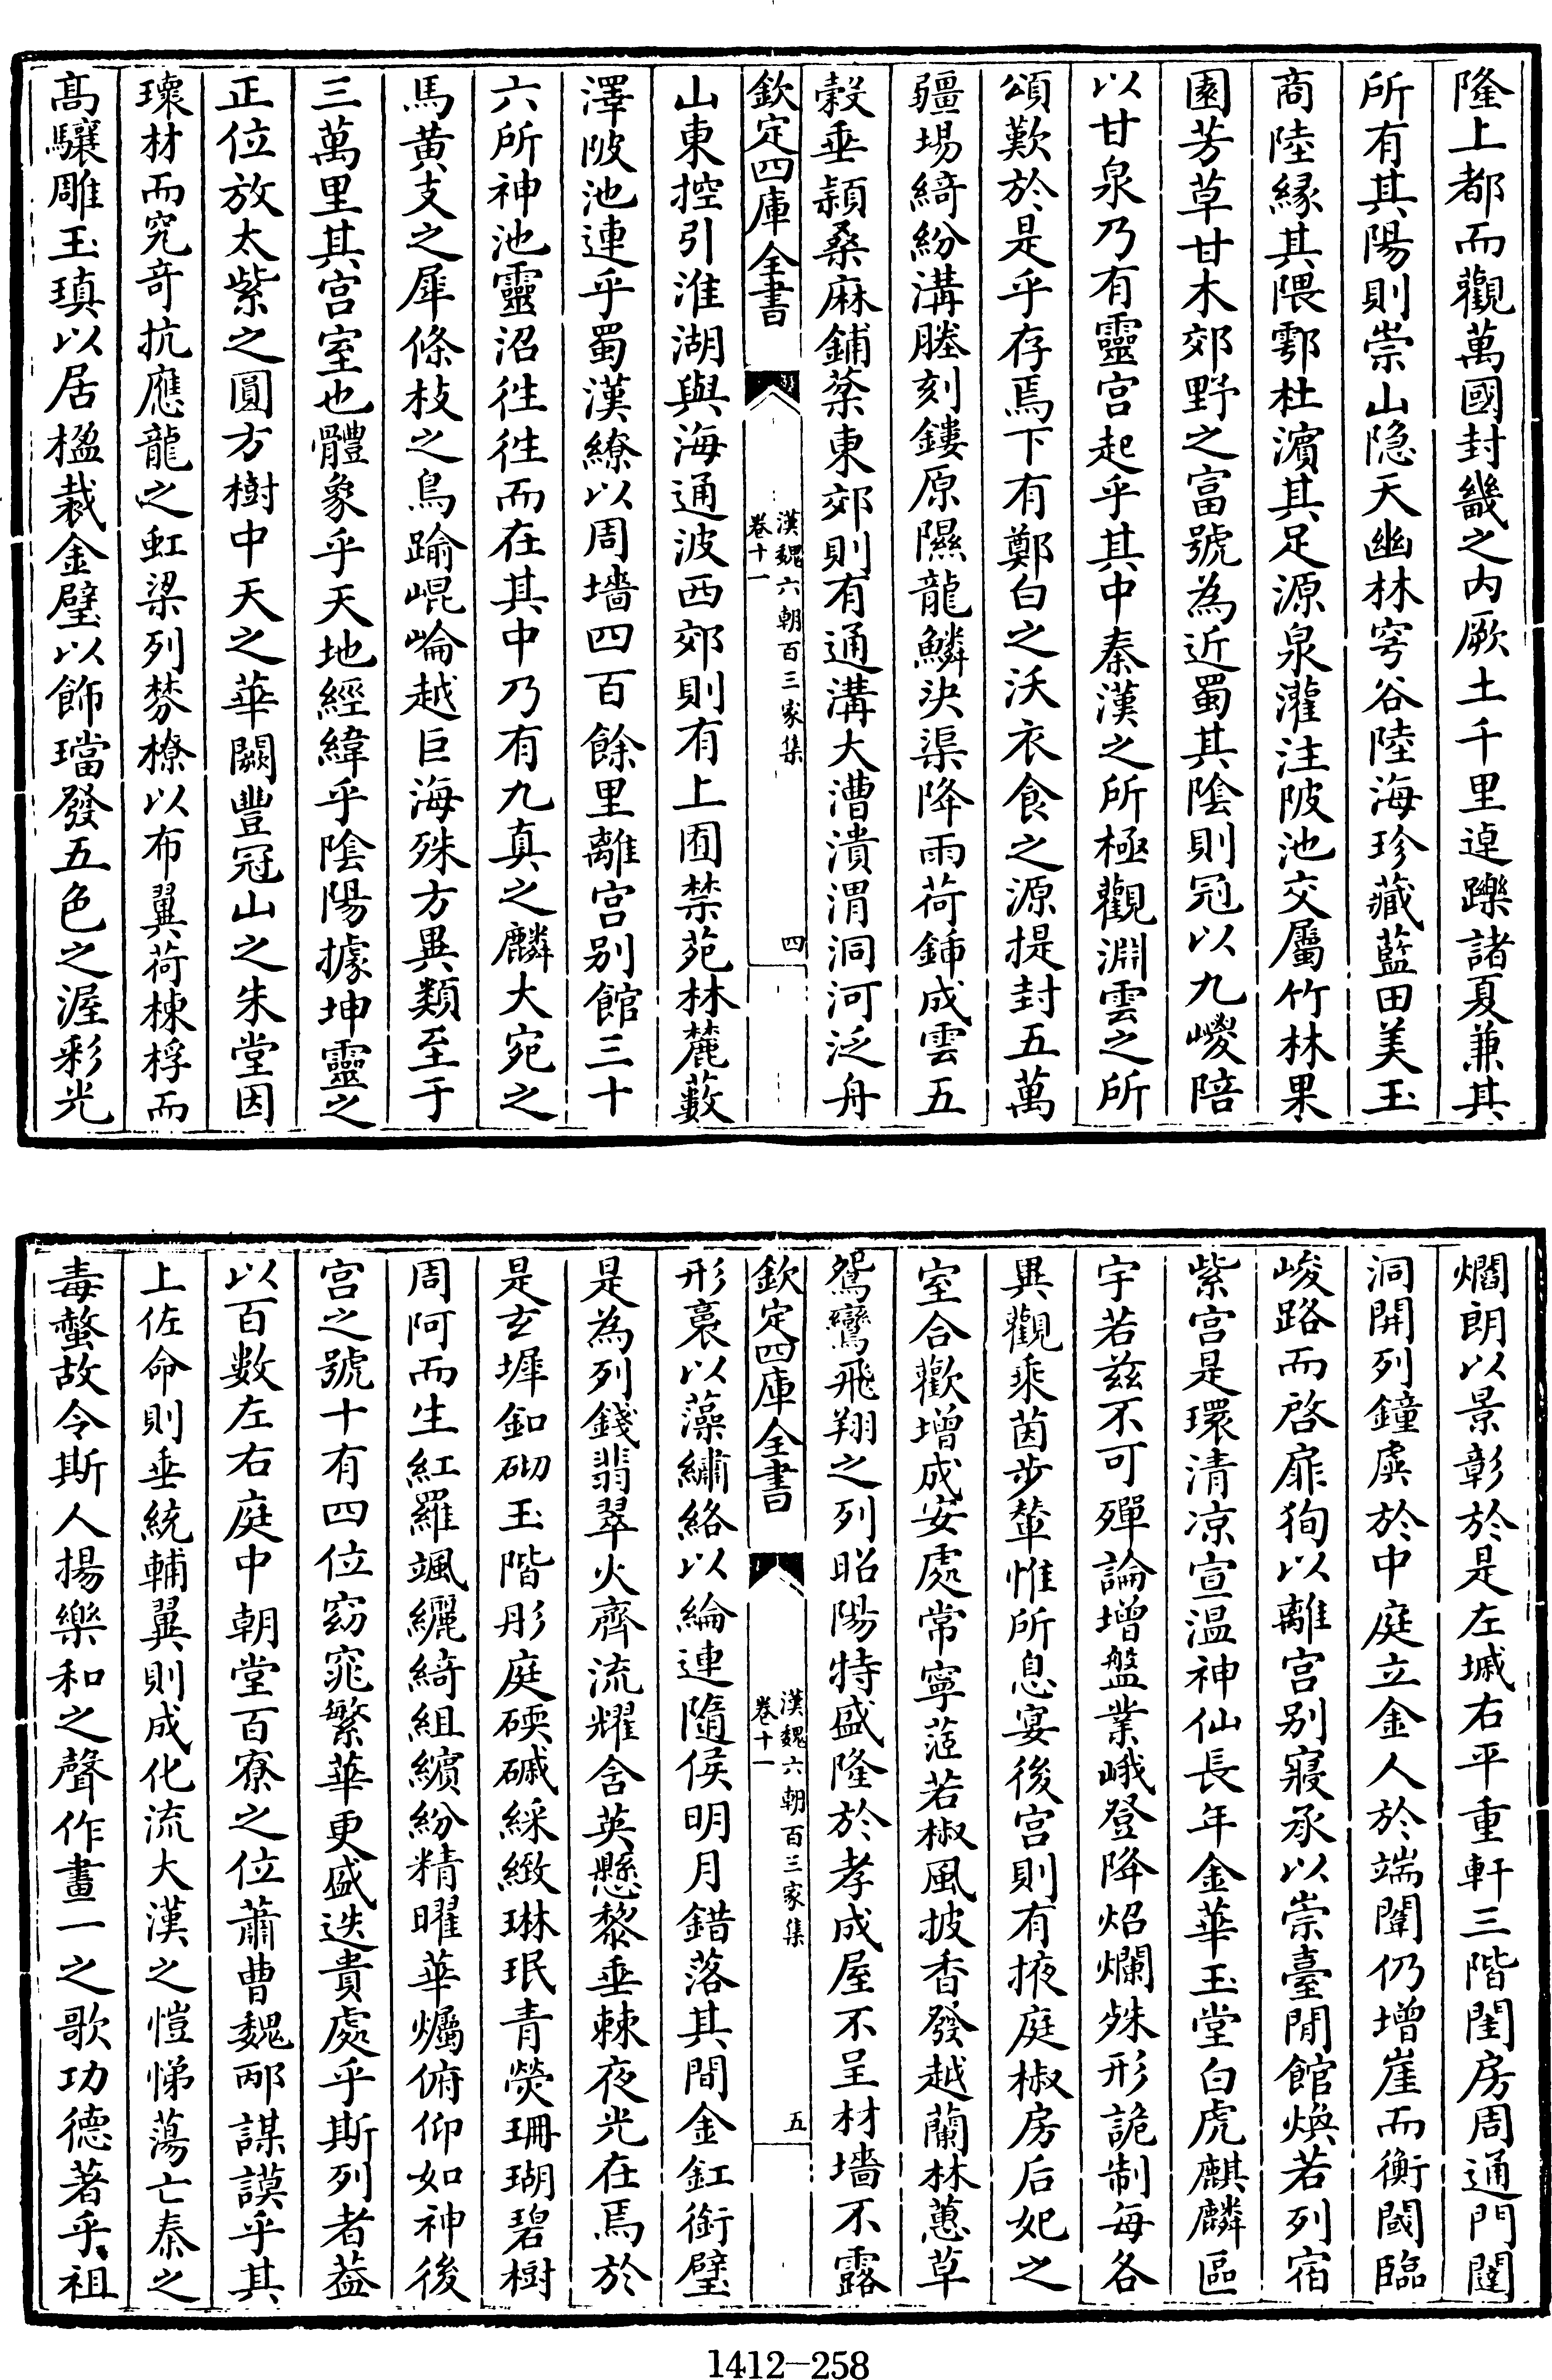 隆上都而觀萬國封畿之内厥土千里逴躒諸夏兼其
所有其陽則崇山隐天幽林穹谷陸海珍藏藍田美玉
商陸緣其隈鄠杜濱其足源泉灌注陂池交屬竹林果
園芳草甘木郊野之富號為近蜀其隂則冠以九嵕陪
以甘泉乃有靈宫起乎其中秦漢之所極觀淵雲之所
頌歎於是乎存焉下有鄭白之沃衣食之源提封五萬
疆埸綺紛溝塍刻鏤原隰龍鱗決渠降雨荷鍤成雲五
穀垂穎桑麻鋪棻東郊則有通溝大漕潰渭洞河泛舟
欽定四庫全書
漢魏六朝百三家集
卷十一
四
山東控引淮湖與海通波西郊則有上囿禁苑林麓藪
澤陂池連乎蜀漢繚以周墻四百餘里離宫别館三十
六所神池靈沼徃徃而在其中乃有九真之麟大宛之
馬黄支之犀條枝之鳥踰崐崘越巨海殊方異類至于
三萬里其宫室也體象乎天地經緯乎隂陽據坤靈之
正位放太紫之圓方樹中天之華闕豐冠山之朱堂因
瓌材而究竒抗應龍之虹梁列棼橑以布翼荷棟桴而
髙驤雕玉瑱以居楹裁金璧以飾璫發五色之渥彩光
爓朗以景彰於是左墄右平重軒三階閨房周通門闥
洞開列鐘虡於中庭立金人於端闈仍增崖而衡閾臨
峻路而啓扉狥以離宫别寢承以崇臺閒館煥若列宿
紫宫是環清凉宣温神仙長年金華玉堂白虎麒麟區
宇若兹不可殫論增盤業峨登降炤爛殊形詭制每各
異觀乘茵步輦惟所息宴後宫則有掖庭椒房后妃之
室合歡增成安處常寧茝若椒風披香發越蘭林蕙草
鴛鸞飛翔之列昭陽特盛隆於孝成屋不呈材墻不露
欽定四庫全書
漢魏六朝百三家集
卷十一
五
形裛以藻繡絡以綸連隨侯明月錯落其間金釭銜璧
是為列錢翡翠火齊流耀含英懸黎垂棘夜光在焉於
是玄墀釦砌玉階彤庭碝磩綵緻琳珉青熒珊瑚碧樹
周阿而生紅羅颯纚綺組繽紛精曜華爥俯仰如神後
宫之號十有四位窈窕繁華更盛迭貴處乎斯列者葢
以百數左右庭中朝堂百寮之位蕭曹魏邴謀謨乎其
上佐命則垂統輔翼則成化流大漢之愷悌蕩亡秦之
毒螫故令斯人揚樂和之聲作畫一之歌功德著乎祖
1412—258